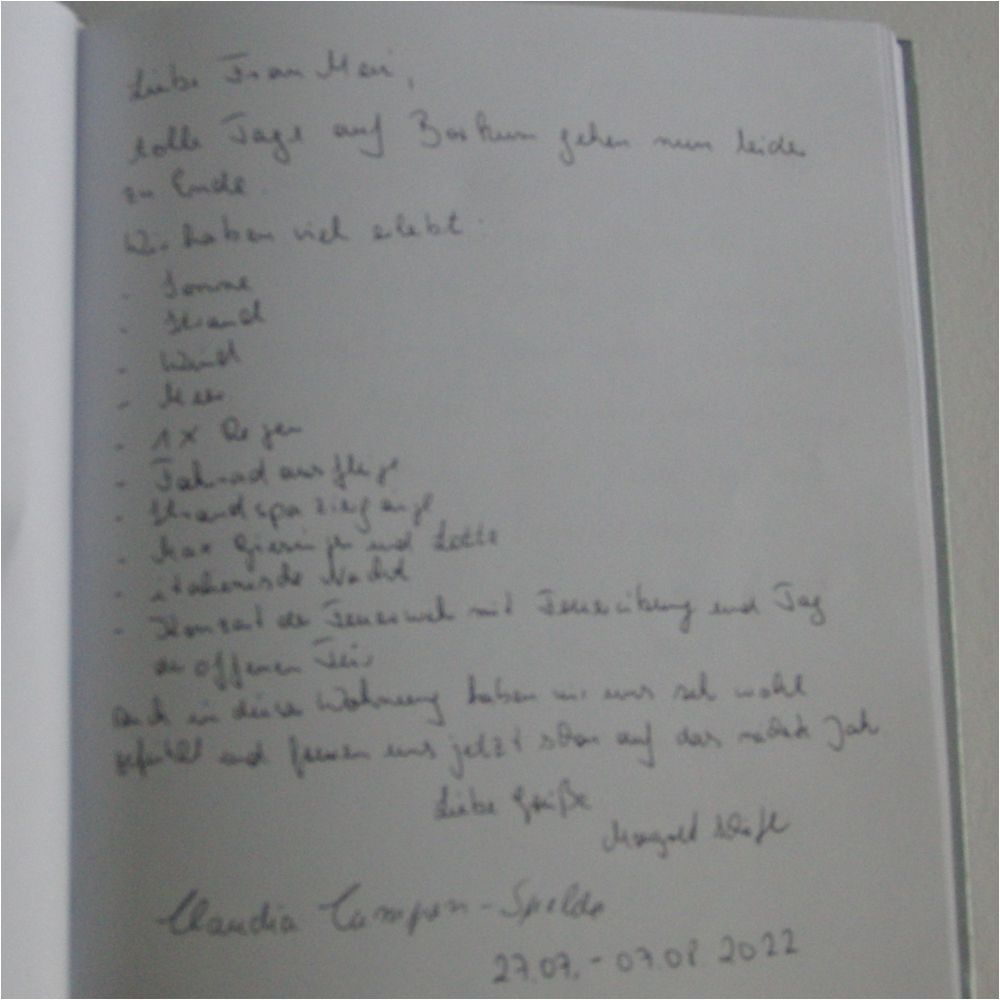 Liebe Frau Meei,
tolle Tage auf Borkum gehen nun leider
zu Ende.
Wir haben viel erlebt:
- Sonne
- Strand
- Wind
- Meer
- 1x Regen
- Fahrradausflüge
- Strandspaziergänge
- Max Giesinger und Lotte
- italienische Nacht
- Konzert der Feuerwehr mit Feuerübung und Tag
der offenen Tür
auch in dieser Wohnung haben wir uns sehr wohl
gefühlt und freuen uns jetzt schon auf das nächste Jahr
Liebe Grüße
Claudia
27.07.-07.08.2022